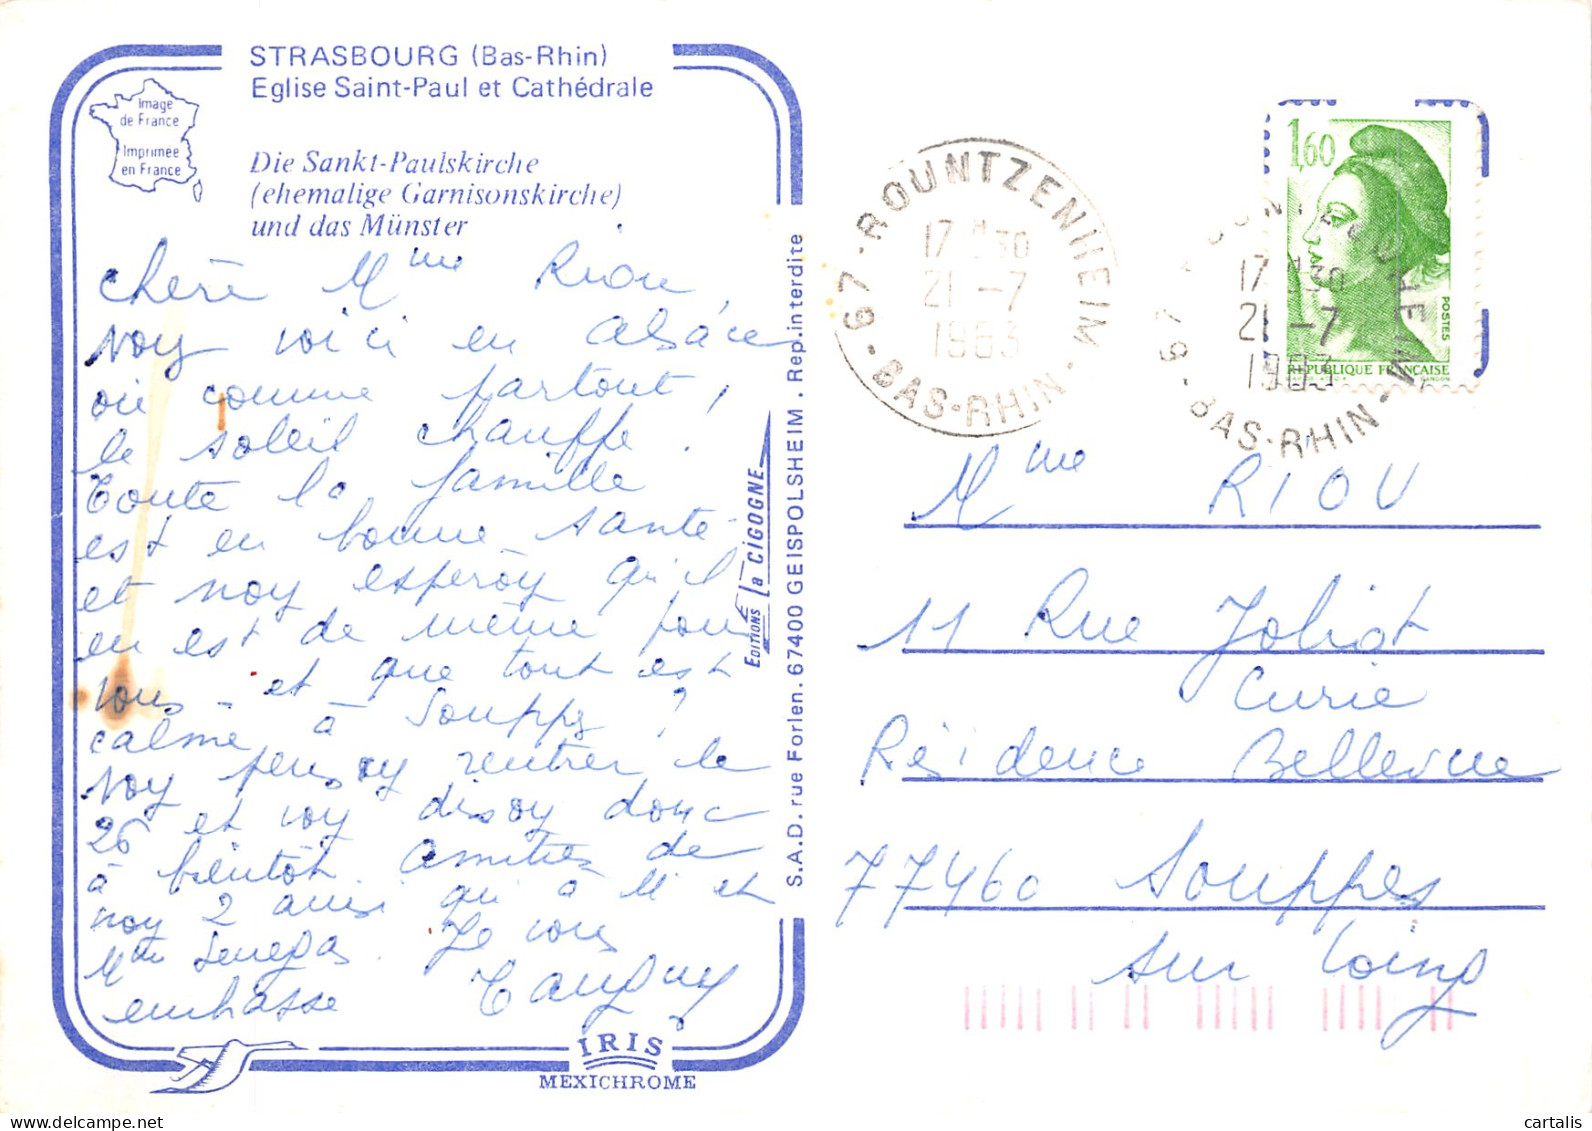 STRASBOURG (Bas-Rhin)
Eglise Saint-Paul et Cathédrale
Image
de France
Imprimée
en France
Die Sankt-Paulskirche
(ehemalige Garnisonskirche)
und das Münster
Chère Mme Riou,
noy voici en alsace
où comme partout,
le soleil chauffe.
Toute la famille
est en bonne santé
et noy espéroy qu'il
en est de même pour
vous - et que tout est
calme à Souppes ?
noy pensoy rentrer le
26 et voy disoy donc
à bientôt. Amitiés de
noy 2 ainsi qu'à M et
Mme Senegas. Je vous
embrasse
EDITIONS La CIGOGNE
S.A.D. rue Forlen. 67400 GEISPOLSHEIM. Rep. interdite
IRIS
MEXICHROME
67-ROUNTZENHEIM
17 H30
21-7
1983
BAS-RHIN
1,60
POSTES
REPUBLIQUE FRANÇAISE
17 H30
21-7
1983
67 - BAS-RHIN
Mme RIOU
11 Rue Joliot
Curie
Résidence Bellevue
77460 Souppes
sur Loing
cartalis
www.delcampe.net